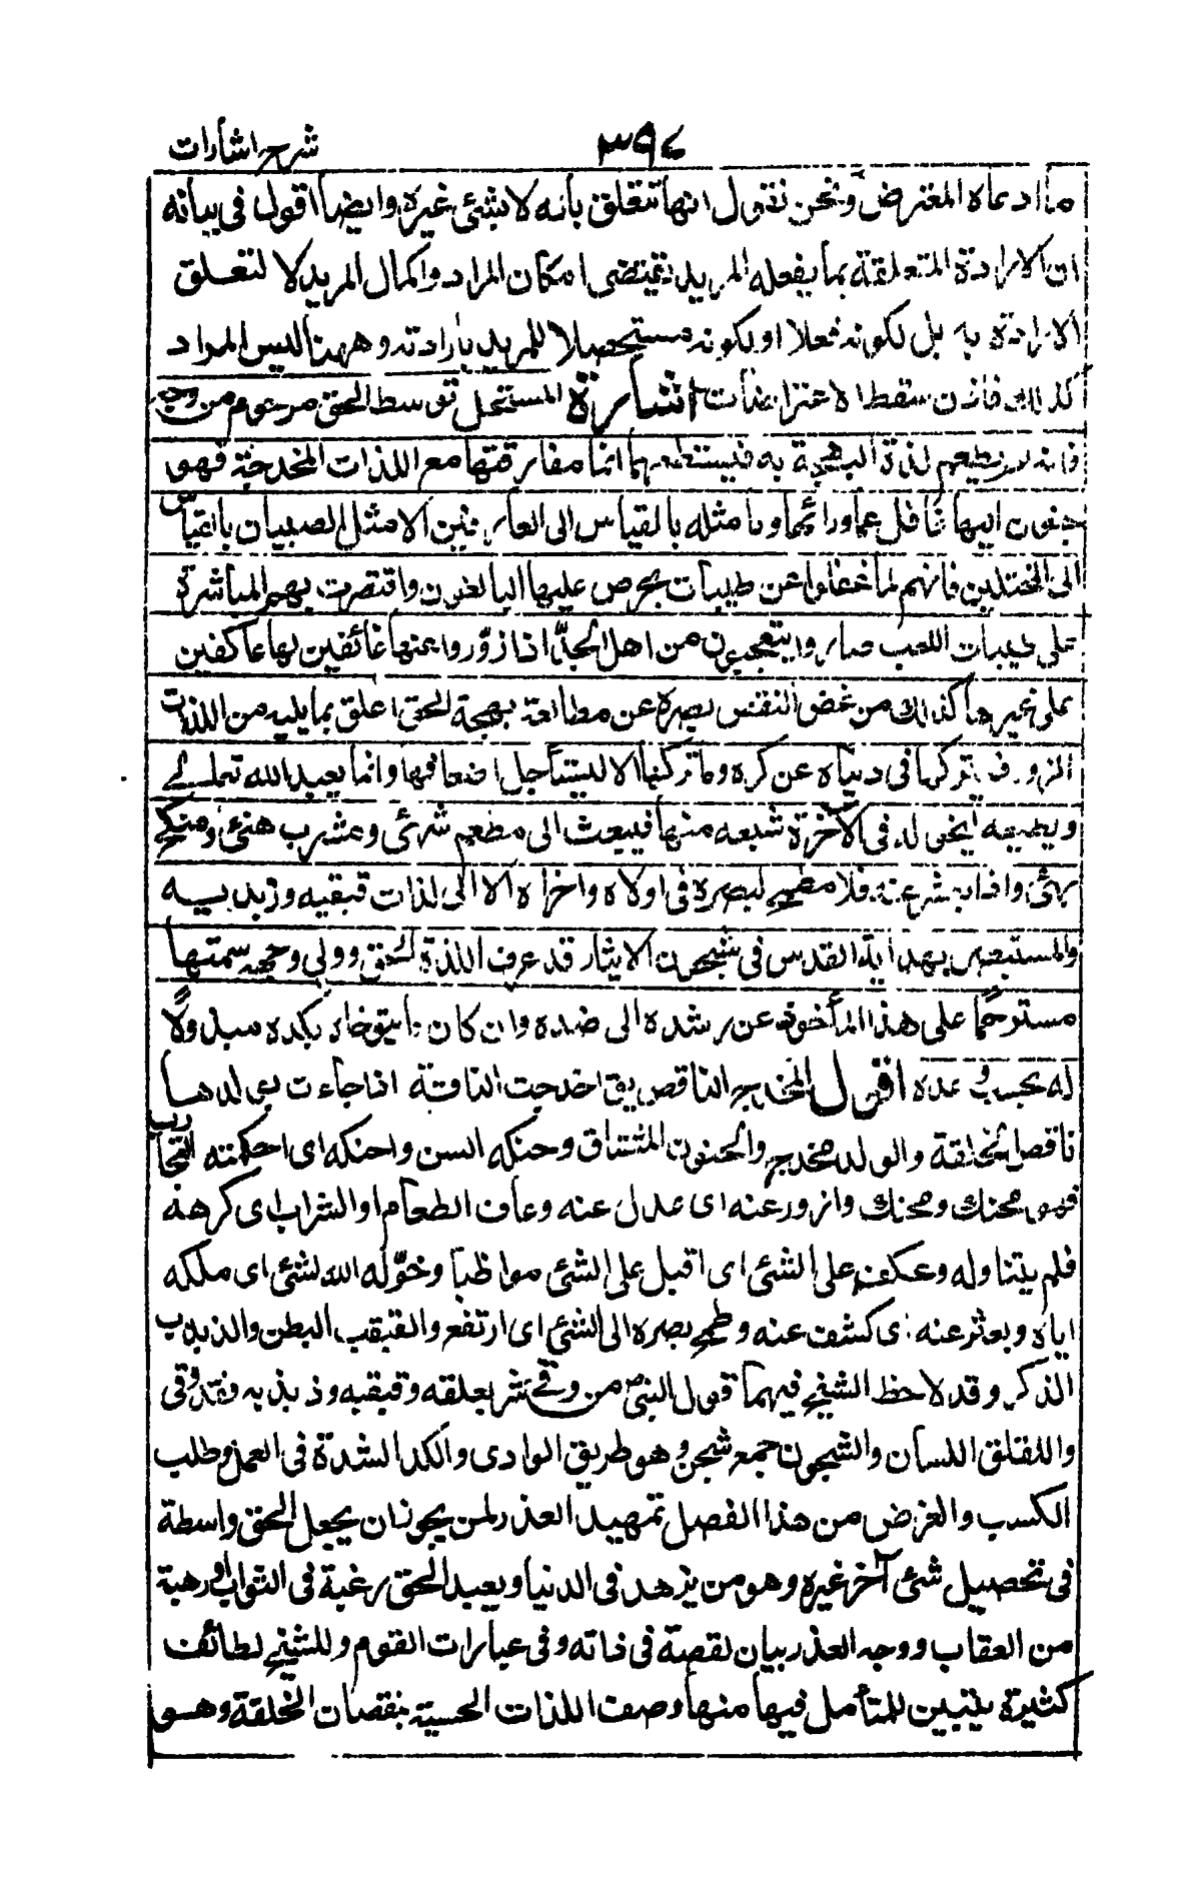 شرح اشارات ٣٩٤
ما ادعاه المعترض ونحن نقول انها تتعلق بأنه لا بشئ غيره وايضا اقول فى بيانه
ان الارادة المتعلقة بما يفعله المريد تقتضى امكان المراد واكمال المريد لا لتعلق
الارادة به بل لكونه فعلا او لكونه مستحصلا للمريد بارادته وههنا ليس المراد
كذلك فاذن سقط الاعتراضات اشارة المستحل توسط الحق مرحوم من وجه
فانه لم يطعم لذة البهجة به فيستطعمها انما معارفته مع اللذات المخدجة فهو
حنون اليها غافل عما ورائها وما مثله بالقياس الى العارفين الا مثل الصبيان بالقياس
الى المحنكين فانهم لما غفلوا عن طيبات يحرص عليها البالغون واقتصرت بهم المباشرة
على طيبات اللعب صاروا يتعجبون من اهل الجد اذا ازوروا عنها عائفين لها عاكفين
على غيرها كذلك من غض النقص بصره عن مطالعة بهجة الحق اعلق بما يليه من اللذات
الزور فيتركها فى دنياه عن كره وما تركها الا ليستأجل اضعافها وانما يعبد الله تعالى
ويطيعه ليخوله فى الآخرة شبعه منها فيبعث الى مطعم شهئ ومشرب هنئ ومنكح
بهئ واذا بعثر عنه فلا مطمح لبصره فى اولاه واخراه الا الى لذات قبقبه وذبذبه
والمستبصر بهداية القدس فى شجون الايثار قد عرف اللذة الحق وولى وجهه سمتها
مسترحما على هذا المأخوذ عن رشده الى ضده وان كان ما يتوخاه بكده مبذولا
له بحسب وعده اقول المخدج الناقص يق اخدجت الناقة اذا جاءت بولدها
ناقص الخلقة والولد مخدج والحنون المشتاق وحنكه السن واحنكه اى احكمته التجارب
فهو محنك ومحنك وازور عنه اى عدل عنه وعاف الطعام او الشراب اى كرهه
فلم يتناوله وعكف على الشئ اى اقبل على الشئ مواظبا وخوّله الله لشئ اى ملكه
اياه وبعثر عنه اى كشف عنه وطمح بصره الى الشئ اى ارتفع والقبقب البطن والذبذب
الذكر وقد لاحظ الشيخ فيهما قول النبى ص من وقى شر لقلقه وقبقبه وذبذبه فقد وقى
واللقلق اللسان والشجون جمع شجن وهو طريق الوادى والكد الشدة فى العمل وطلب
الكسب والغرض من هذا الفصل تمهيد العذر لمن يجوز ان يجعل الحق واسطة
فى تحصيل شئ آخر غيره وهو من يزهد فى الدنيا ويعبد الحق رغبة فى الثواب او رهبة
من العقاب ووجه العذر بيان نقصه فى ذاته وفى عبارات القوم وللشيخ لطائف
كثيرة يتبين للمتأمل فيها منها وصف اللذات الحسية بنقصان الخلقة وهو